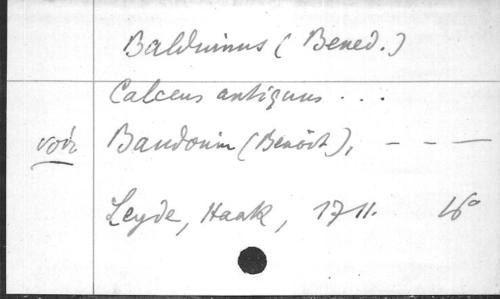 Balduinus (Bened.)
Calceus antiquus . . .
voir Baudouin (Benoît), - - -
Leyde, Haak, 1711. 16°